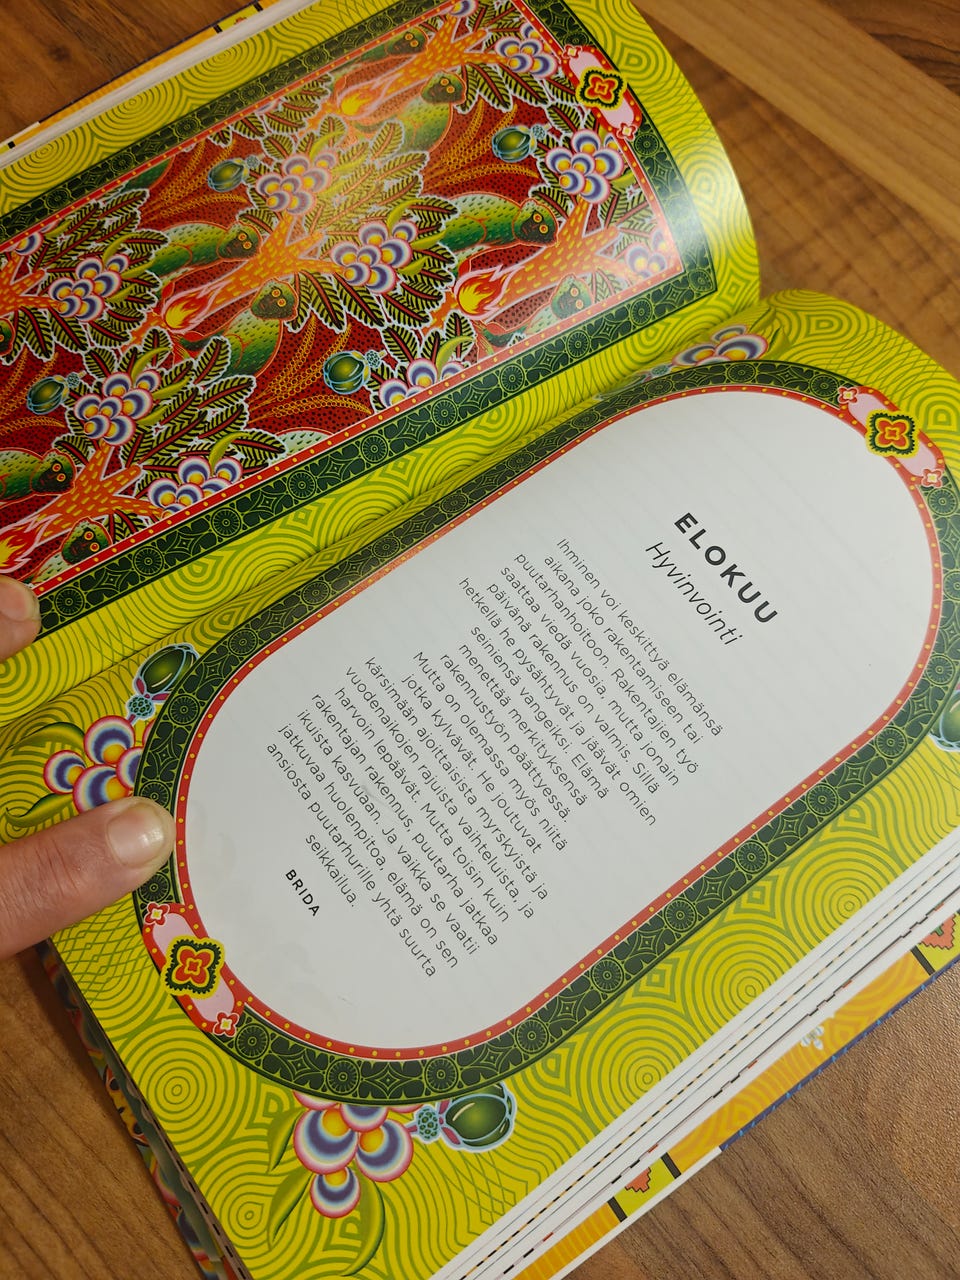 ELOKUU
Hyvinvointi
Ihminen voi keskittyä elämänsä
aikana joko rakentamiseen tai
puutarhanhoitoon. Rakentajien työ
saattaa viedä vuosia, mutta jonain
päivänä rakennus on valmis. Sillä
hetkellä he pysähtyvät ja jäävät omien
seiniensä vangeiksi. Elämä
menettää merkityksensä
rakennustyön päättyessä.
Mutta on olemassa myös niitä
jotka kylvävät. He joutuvat
kärsimään ajoittaisista myrskyistä ja
vuodenaikojen rajuista vaihteluista, ja
harvoin lepäävät. Mutta toisin kuin
rakentajan rakennus, puutarha jatkaa
ikuista kasvuaan. Ja vaikka se vaatii
jatkuvaa huolenpitoa, elämä on sen
ansiosta puutarhurille yhtä suurta
seikkailua.
BRIDA